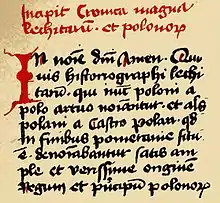 Incipit Cronica magna
lechitarum. et polonorum
In noīe dm̄ Amen. Quā
vis historographi lechi
tarū. qui nūc poloni a
polo artico noīantur. et als
polani a Castro polan. qd
in finibus pomeranie situ
ē. denoīabantur satis am
ple et verissime originē
Regum et pncipū polonoꝝ